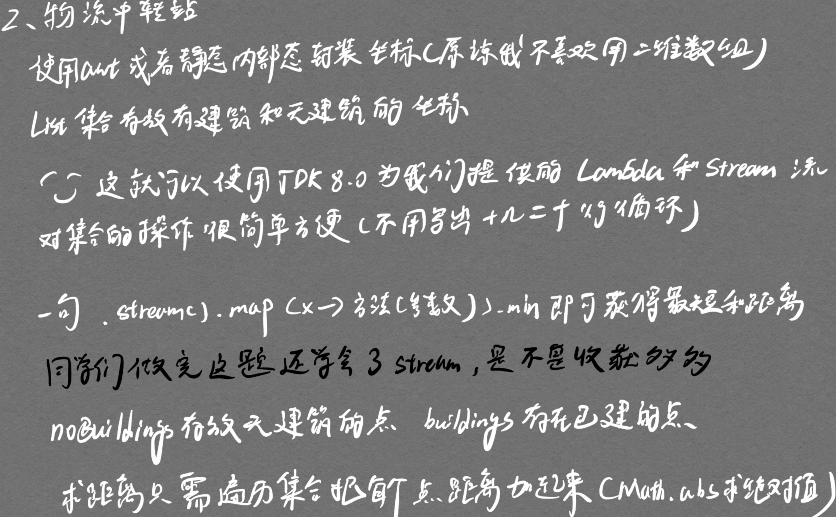 2、物流中转站
使用awt或者静态内部态封装坐标(原㤈我不喜欢用二维数组)
List集合存放有建筑和无建筑的坐标
这就可以使用JDK8.0为我们提供的 Lambda和Stream流
对集合的操作很简单方便(不用写出十几二十个循环)
一句 .stream().map(x->方法(参数)).min即可获得最短和距离
同学们做完这题还学会了stream,是不是收获多多
noBuildings存放无建筑的点 buildings存在已建的点、
求距离只需遍历集合把每个点距离加起来(Math.abs求绝对值)